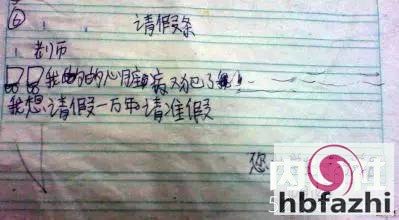 ⑥ 请假条
老师
我的的心脏病又犯了
我想请假一万年请准假
您
hbfazhi